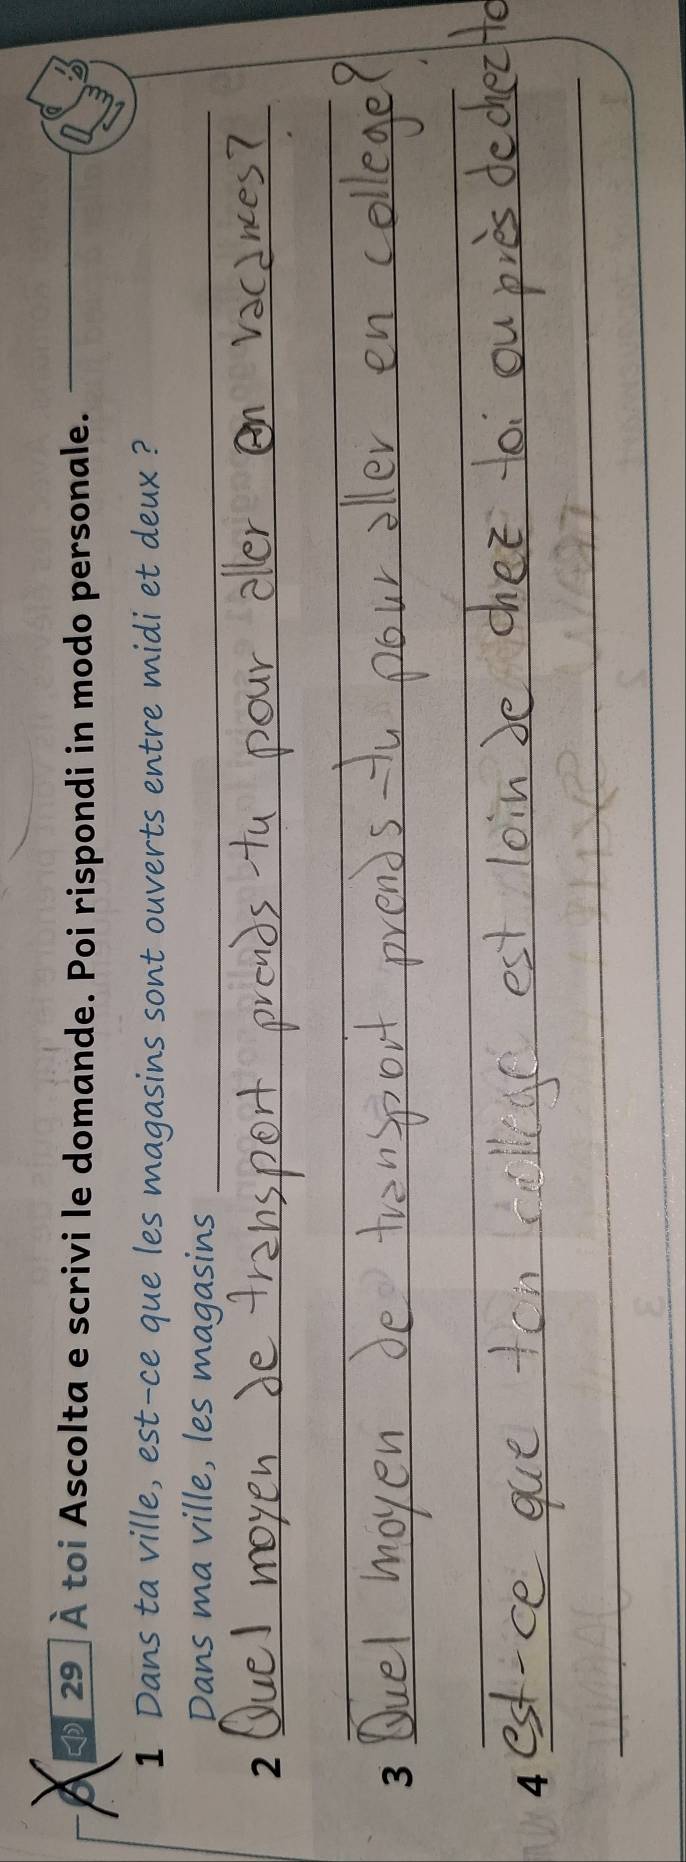 6 29 À toi Ascolta e scrivi le domande. Poi rispondi in modo personale.
1 Dans ta ville, est-ce que les magasins sont ouverts entre midi et deux ?
Dans ma ville, les magasins
2 Quel moyen de transport prends-tu pour aller en vacances?
3 Quel moyen de transport prends-tu pour aller en college?
4 est-ce que ton college est loin de chez toi ou près de chez to